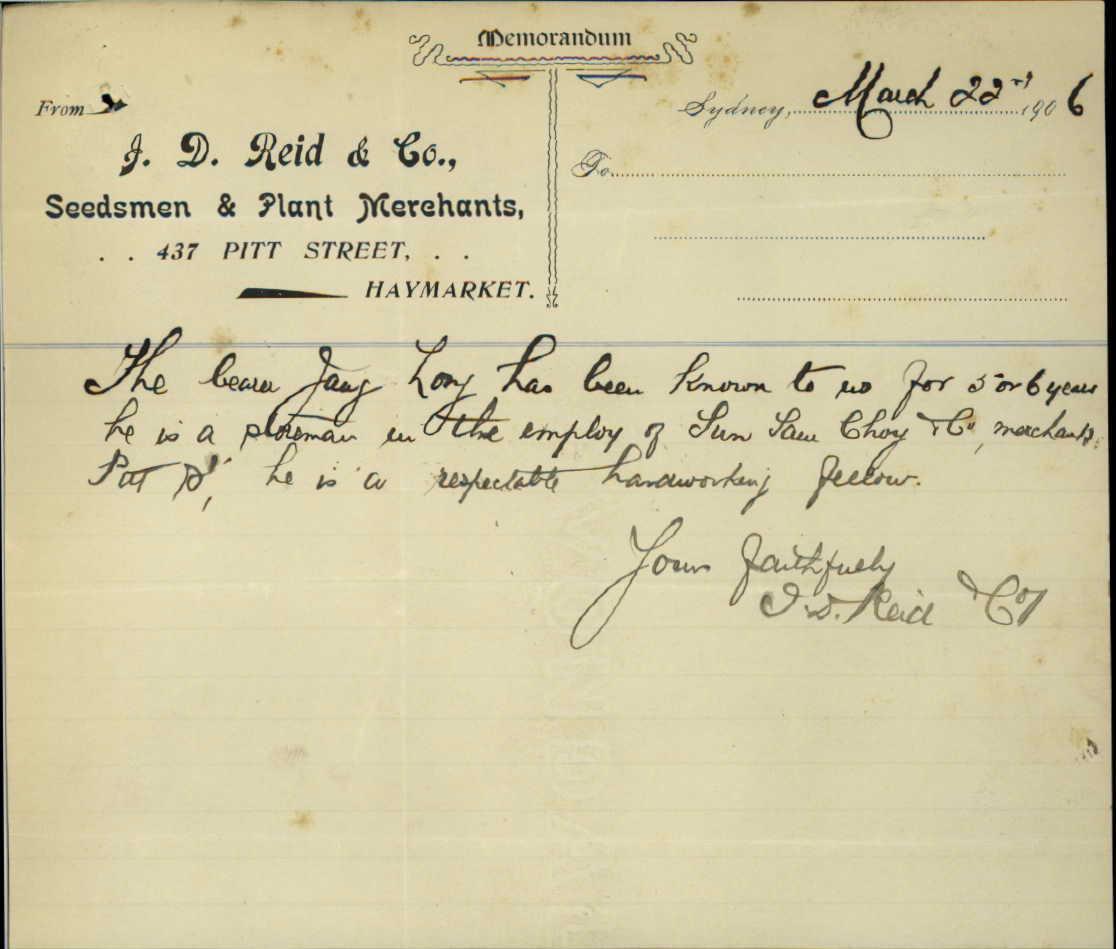 Memorandum
From
Sydney, March 22nd 1906
J. D. Reid & Co.,
To
Seedsmen & Plant Merchants,
. . 437 PITT STREET, . .
HAYMARKET.
The bearer Jang Long has been known to us for 5 or 6 years
he is a storeman in the employ of Sun Sam Choy & Co, merchants,
Pitt St, he is a respectable hardworking fellow.
Yours faithfully
J. D. Reid & Co